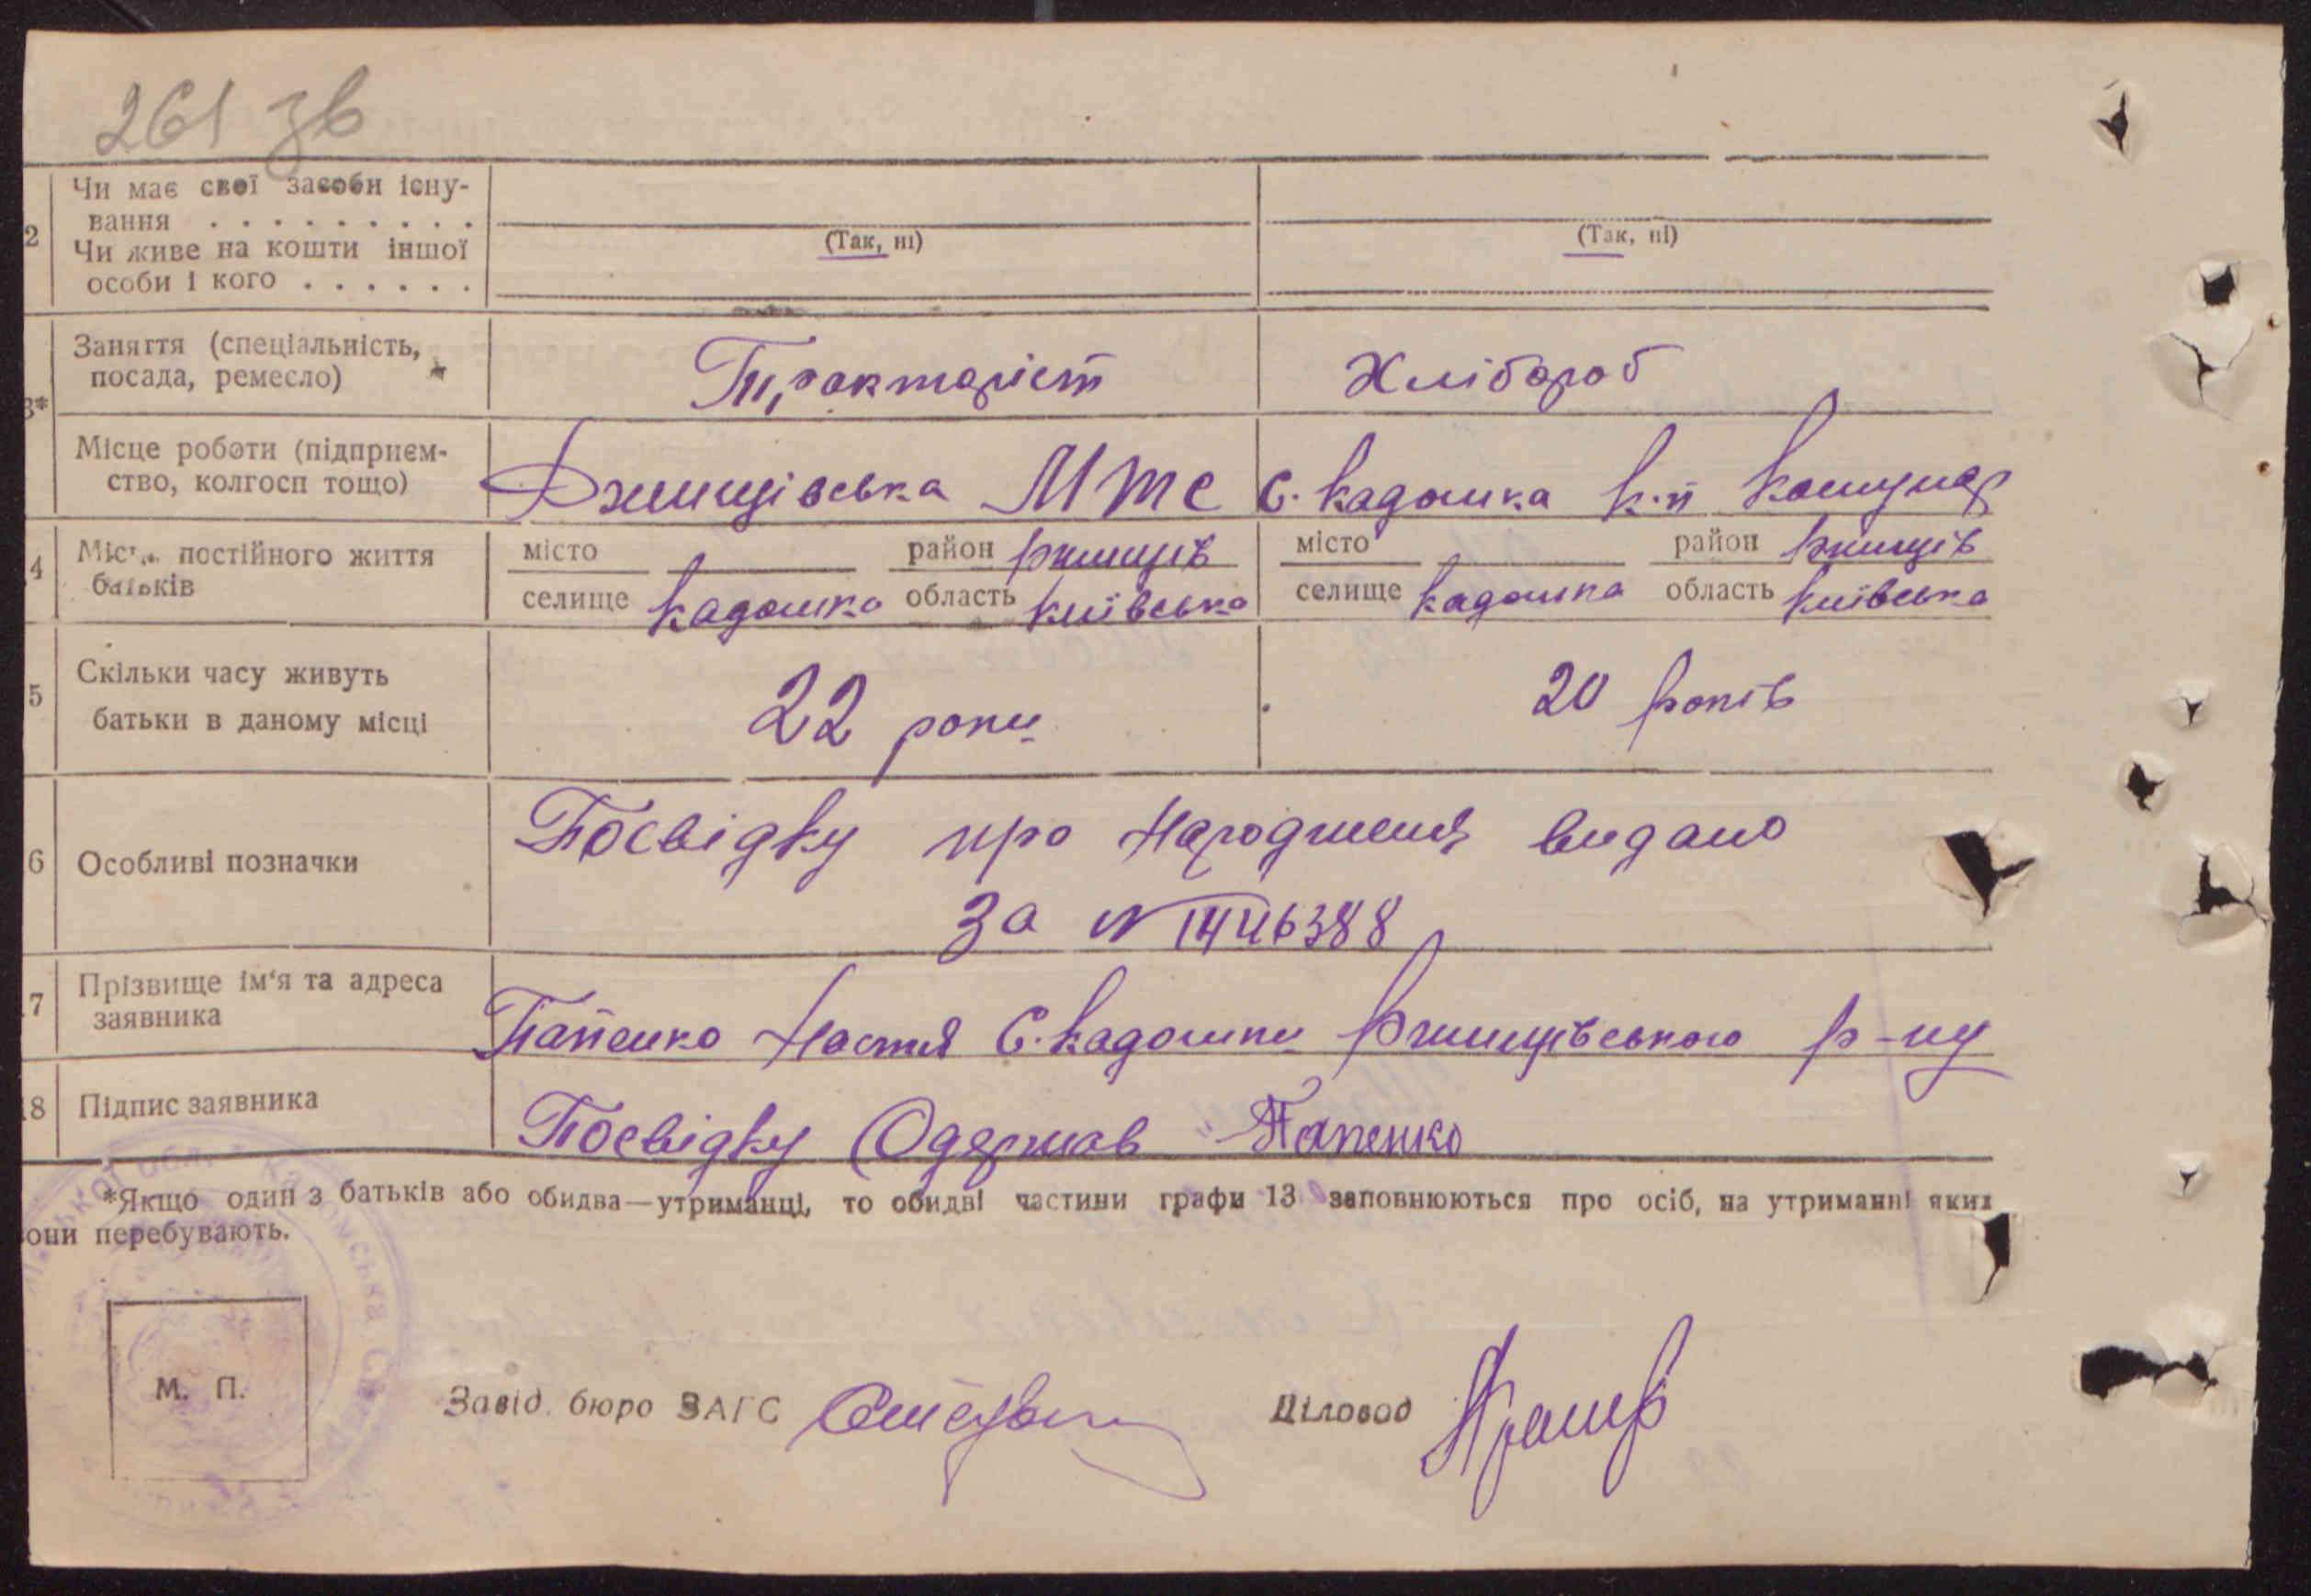 261 зв
2
Чи має свої засоби існу-
вання . . . . . . . . .
Чи живе на кошти іншої
особи і кого . . . . . .
(Так, ні)
(Так, ні)
3*
Заняття (спеціальність,
посада, ремесло)
Тракторіст
Хлібороб
Місце роботи (підприєм-
ство, колгосп тощо)
Ржищівська МТС
С. Кадомка к-п Комунар
4
Місце постійного життя
батьків
місто
район Ржищів
селище Кадомка область Київська
місто
район Ржищів
селище Кадомка область Київська
5
Скільки часу живуть
батьки в даному місці
22 роки
20 років
6
Особливі позначки
Посвідку про народження видано
За №
7
Прізвище ім'я та адреса
заявника
Папенко Настя С. Кадомки Ржищівського р-ну
18
Підпис заявника
Посвідку Одержав Папенко
*Якщо один з батьків або обидва—утриманці, то обидві частини графи 13 заповнюються про осіб, на утриманні яких
вони перебувають.
М. П.
Завід. бюро ЗАГС
Діловод